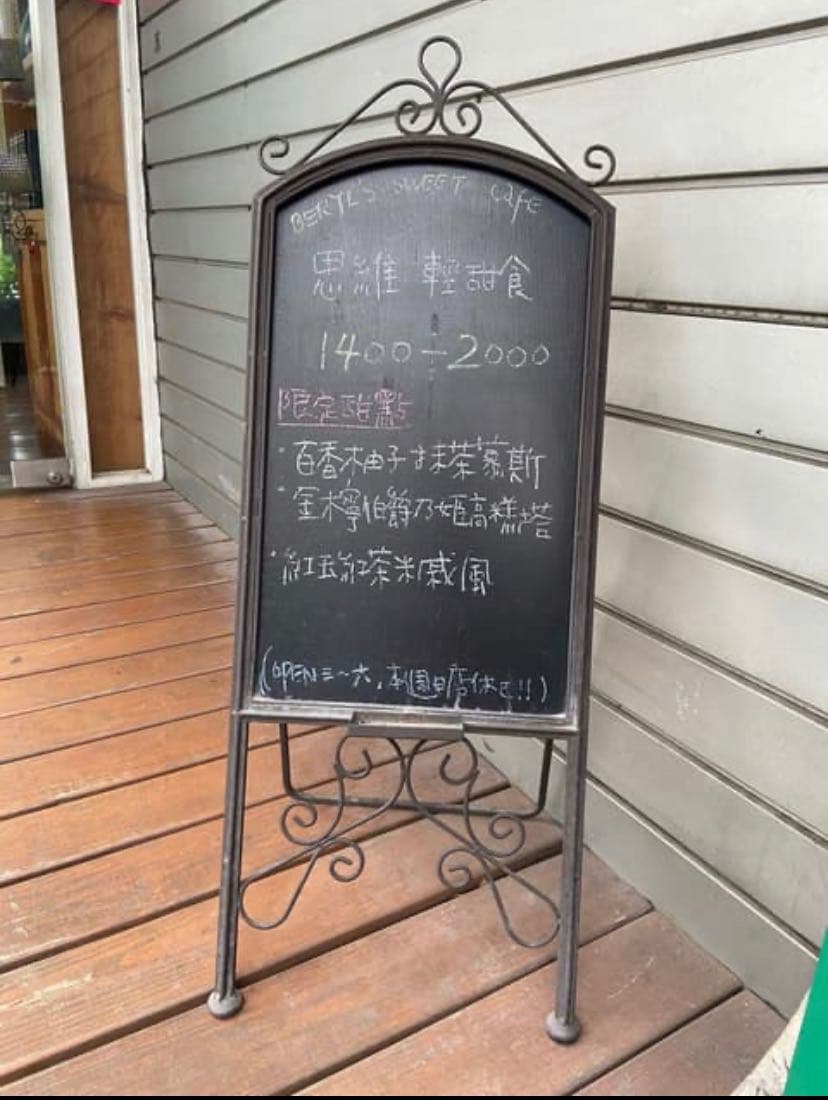 BERYL'S SWEET Cafe
思維 輕甜食
1400－2000
限定甜點
·百香柚子抹茶慕斯
·金檸伯爵乃姬高糕塔
·紅玉紅茶米戚風
(OPEN 三～六，本週日店休已!!)